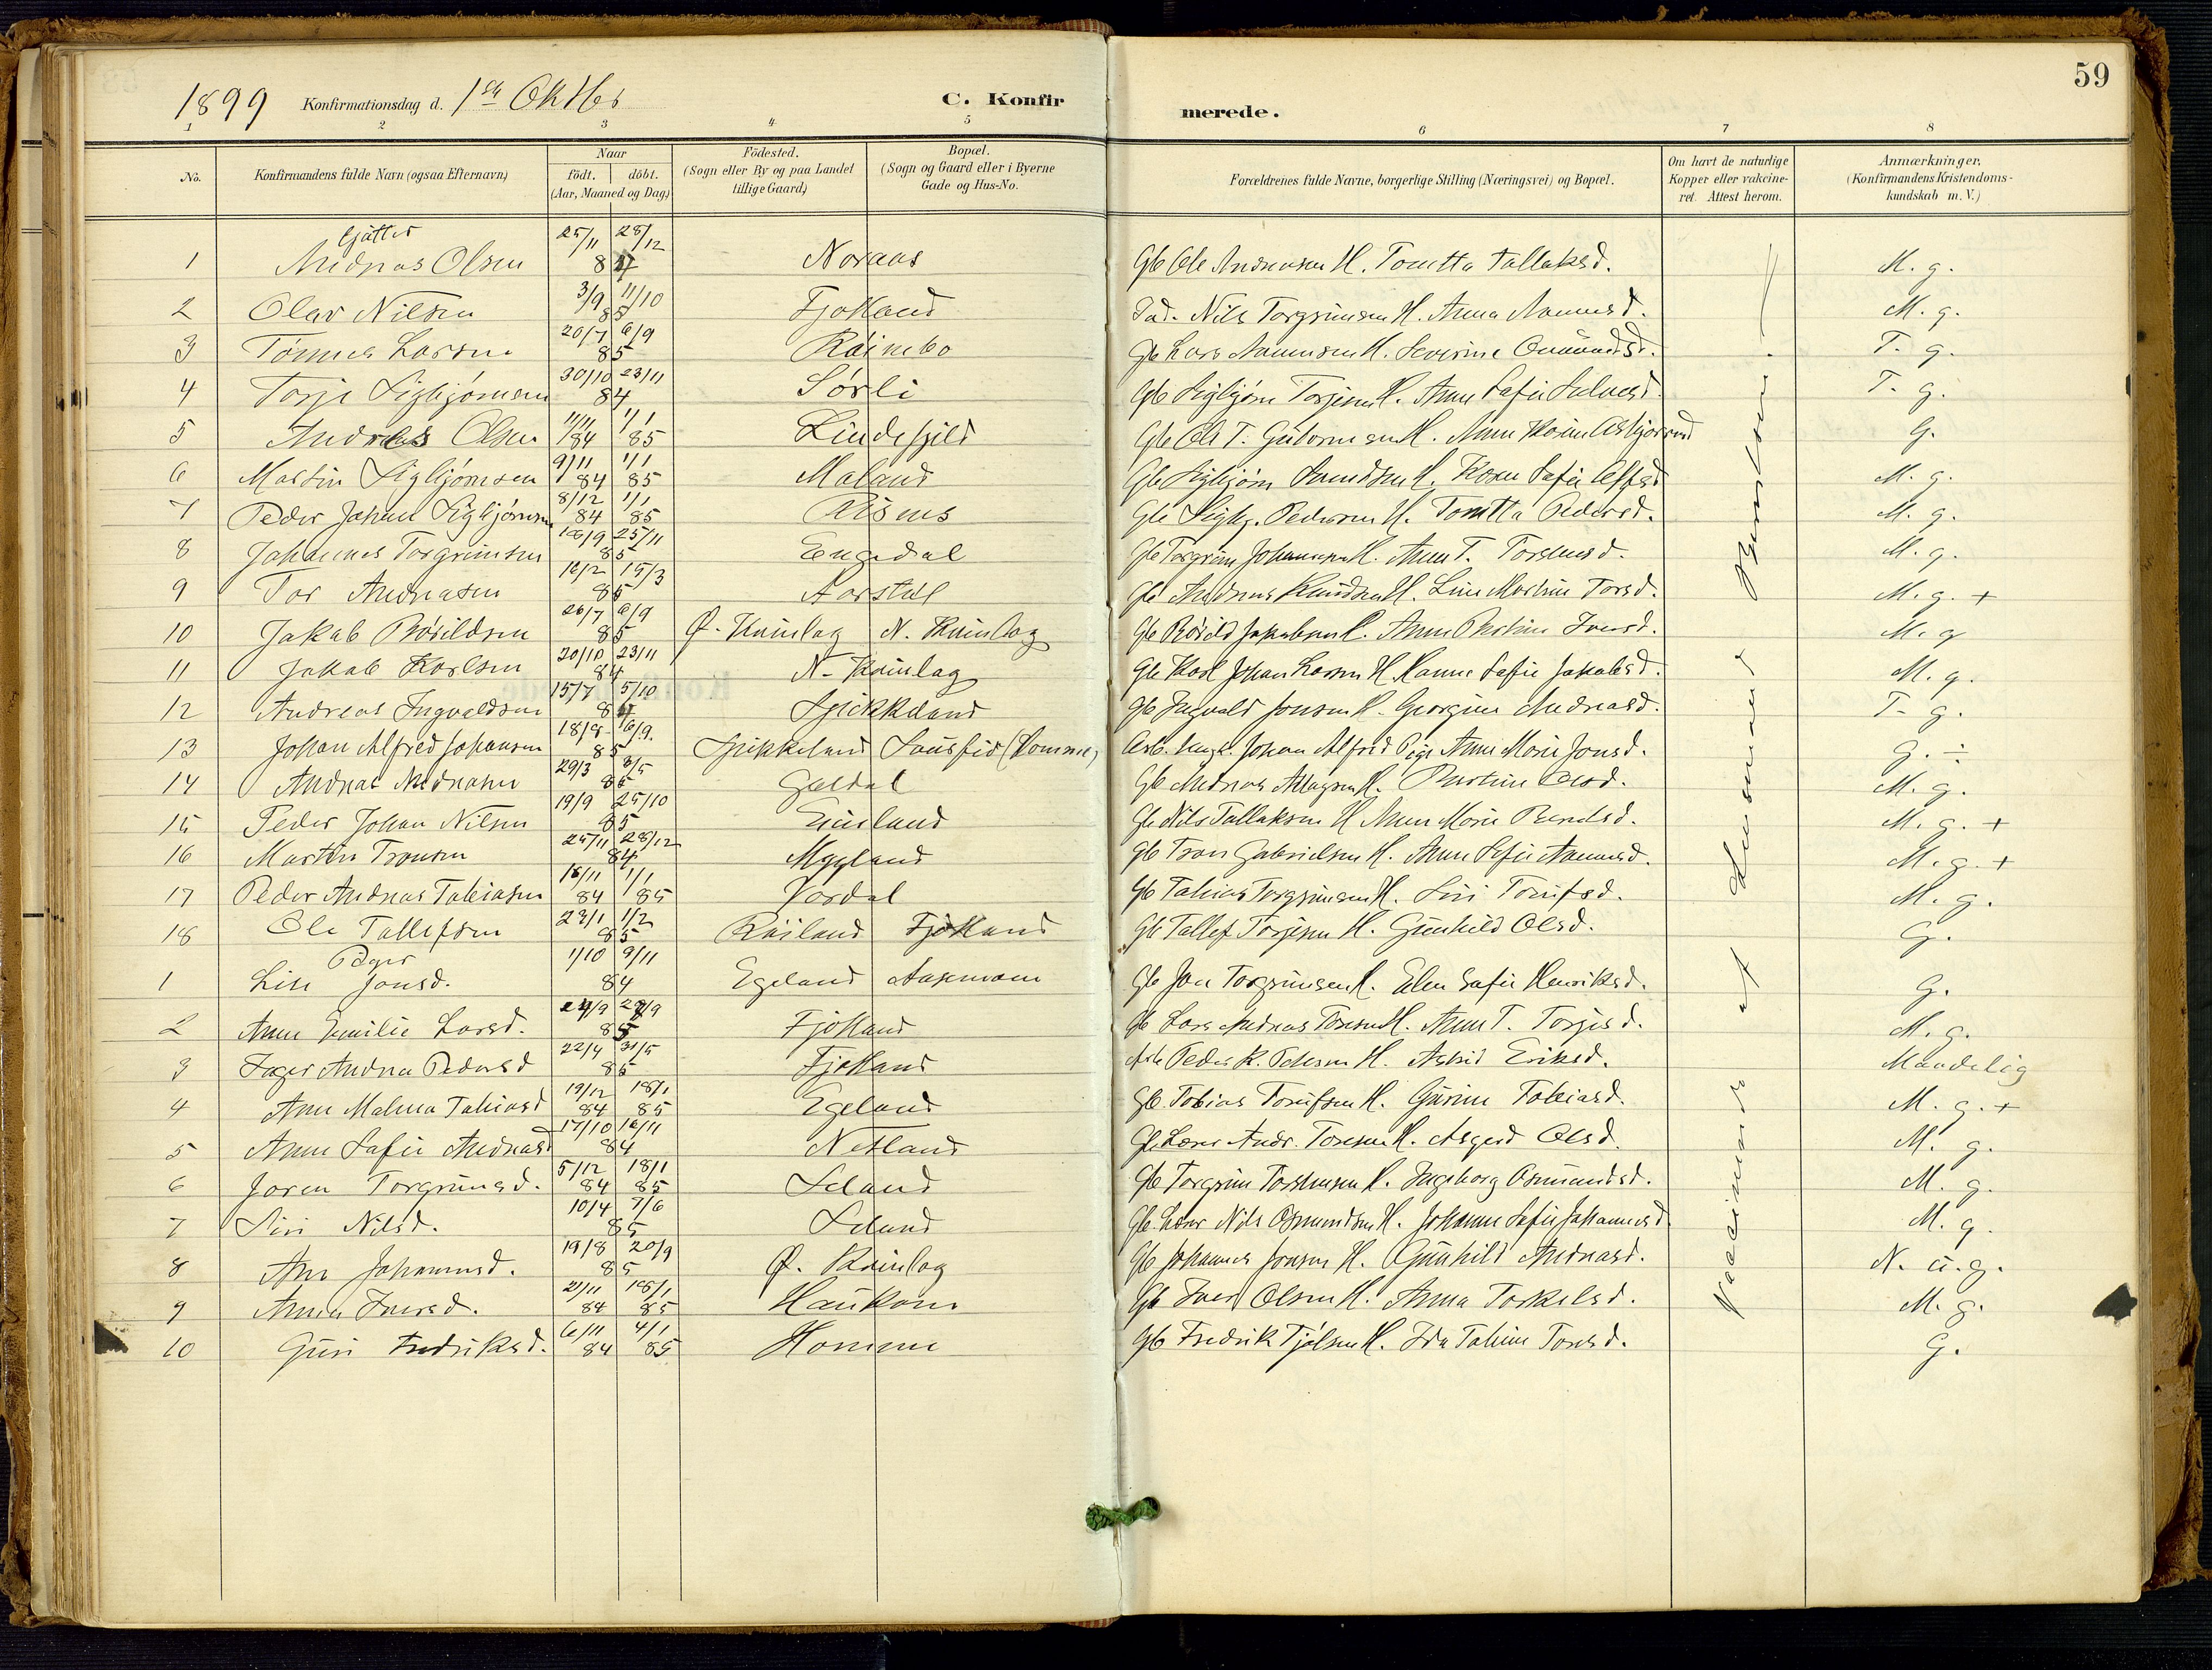 59
1899 Konfirmationsdag d. 1ste Oktbr C. Konfirmerede.
1 2 3 4 5 6 7 8
No. Konfirmandens fulde Navn (ogsaa Efternavn) Naar födt. döbt. (Aar, Maaned og Dag) Födested. (Sogn eller By og paa Landet tillige Gaard) Bopæl. (Sogn og Gaard eller i Byerne Gade og Hus-No. Forældrenes fulde Navne, borgerlige Stilling (Næringsvei) og Bopæl. Om havt de naturlige Kopper eller vakcineret. Attest herom. Anmærkninger. (Konfirmandens Kristendomskundskab m. V.)
Gjutter
1 Andreas Olsen 25/11 28/12 84 Noraas Gb Ole Andreasen H. Tomtta Tallaksd. M. g.
2 Olav Nilsen 3/9 11/10 85 Fjotland Ind. Nils Torgrimsen H. Anna Aanensd. M. g.
3 Tønnes Larsen 20/7 6/9 85 Gb Lars Aanensen H. Severine T. g.
4 Torje Sigbjørnsen 30/10 23/11 84 Sørli Gb Sigbjørn Torjesen H. Anne Sofie T. g.
5 Andreas Olsen 11/11 84 1/1 85 Lindefjeld Gb Ole T. Gutormsen H. G.
6 Martin Sigbjørnsen 9/11 84 1/1 85 Moland Gb Sigbjørn H. Karen Sofie M. g.
7 Peder Johan Sigbjørnsen 8/12 84 1/1 85 Gb Sigbj. Pedersen H. Tomtta Pedersd. M. g.
8 Johannes Torgrimsen 25/11 85 Engedal Gb Torgrim Johannesen H. Anne T. M. g.
9 Tor Andreasen 15/3 85 Aarstøl Gb Andreas Knudsen H. Line Martine Torsd. M. g. +
10 Jakob Røsildsen 26/7 6/9 85 Ø. Kvinlog N. Kvinlog Gb Røsild Jakobsen H. Anne Iversd. M. g
11 Jakob Karlsen 20/10 23/11 84 N. Kvinlog Gb Karl Johan Larsen H. Hanne Sofie Jakobsd. M. g.
12 Andreas Ingvaldsen 15/7 5/10 84 Spikkeland Gb Ingvald Jonsen H. Georgine Andreasd. T. g.
13 Johan Alfred Johansen 18/8 6/9. 85 Spikkeland (Homme) Arb. Johan Alfred Pige Anne Marie Jonsd. G. ÷
14 Andreas Andreasen 29/3 3/5 85 Gb Andreas H. Olsd. M. g.
15 Peder Johan Nilsen 19/9 25/10 85 Gb Nils Tallaksen H Anne Marie M. g. +
16 Martin Tronsen 25/11 28/12 84 Mygland Gb Tron Gabrielsen H. Anne Sofie Aanensd. M. g. +
17 Peder Andreas Tobiasen 18/11 84 1/1 85 Vordal Gb Tobias Torgrimsen H. Siri M. g.
18 Ole Tallefsen 23/1 1/2 85 Røiland Fjotland Gb Tallef Torjesen H. Gunhild Olsd. G.
Piger
1 Lise Jonsd. 1/10 9/11 84 Egeland Gb Jon Torgrimsen H. Elen Sofie Henriksd. G.
2 Anne Emilie Larsd. 85 Fjotland Gb Lars Andreas H. Anne T. Torjesd. M. g.
3 Inger Andrea Pedersd 22/4 31/5 85 Fjotland Arb Peder K. Pedersen H. Astrid Eriksd. Maadelig
4 Anne Malena Tobiasd 19/12 84 18/1 85 Egeland Gb. Tobias H. Gurine Tobiasd. M. g. +
5 Anne Sofie Andreasd 17/10 16/11 84 Netland Gb. Andr. H. Asgerd Olsd. M. g.
6 Joren Torgrimsd. 5/12 84 18/1 85 Seland Gb Torgrim H. Ingeborg Osmundsd. M. g.
7 Siri Nilsd. 10/4 7/6 85 Seland Gb. Nils Osmundsen H. Johanne Sofie Johannesd M. g.
8 Ane Johannesd. 19/8 20/9 85 Ø. Kvinlog Gb Johannes Jonsen H. Gunhild Andreasd. N. u. g.
9 Anna Iversd. 21/11 84 18/1 85 Haukom Gb Iver Olsen H. Anna Torkelsd. M. g.
10 Guri Fredriksd. 6/11 84 4/1 85 Homme Gb Fredrik Tjølsen H. Ida Toline Toresd. G.